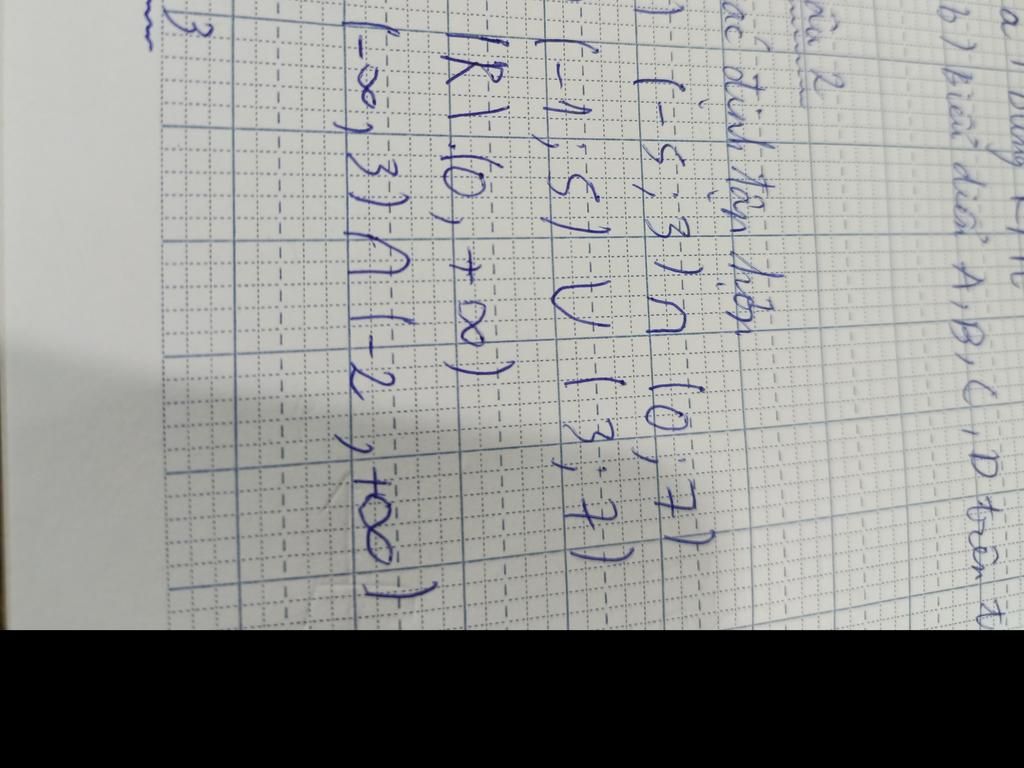 a) Dùng
b) biểu diễn A, B, C, D trên t
câu 2
xác định tập hợp
) (-5; 3) ∩ (0; 7)
(-1; 5) ∪ (3; 7)
ℝ \ (0; +∞)
(-∞; 3) ∩ (-2; +∞)
3